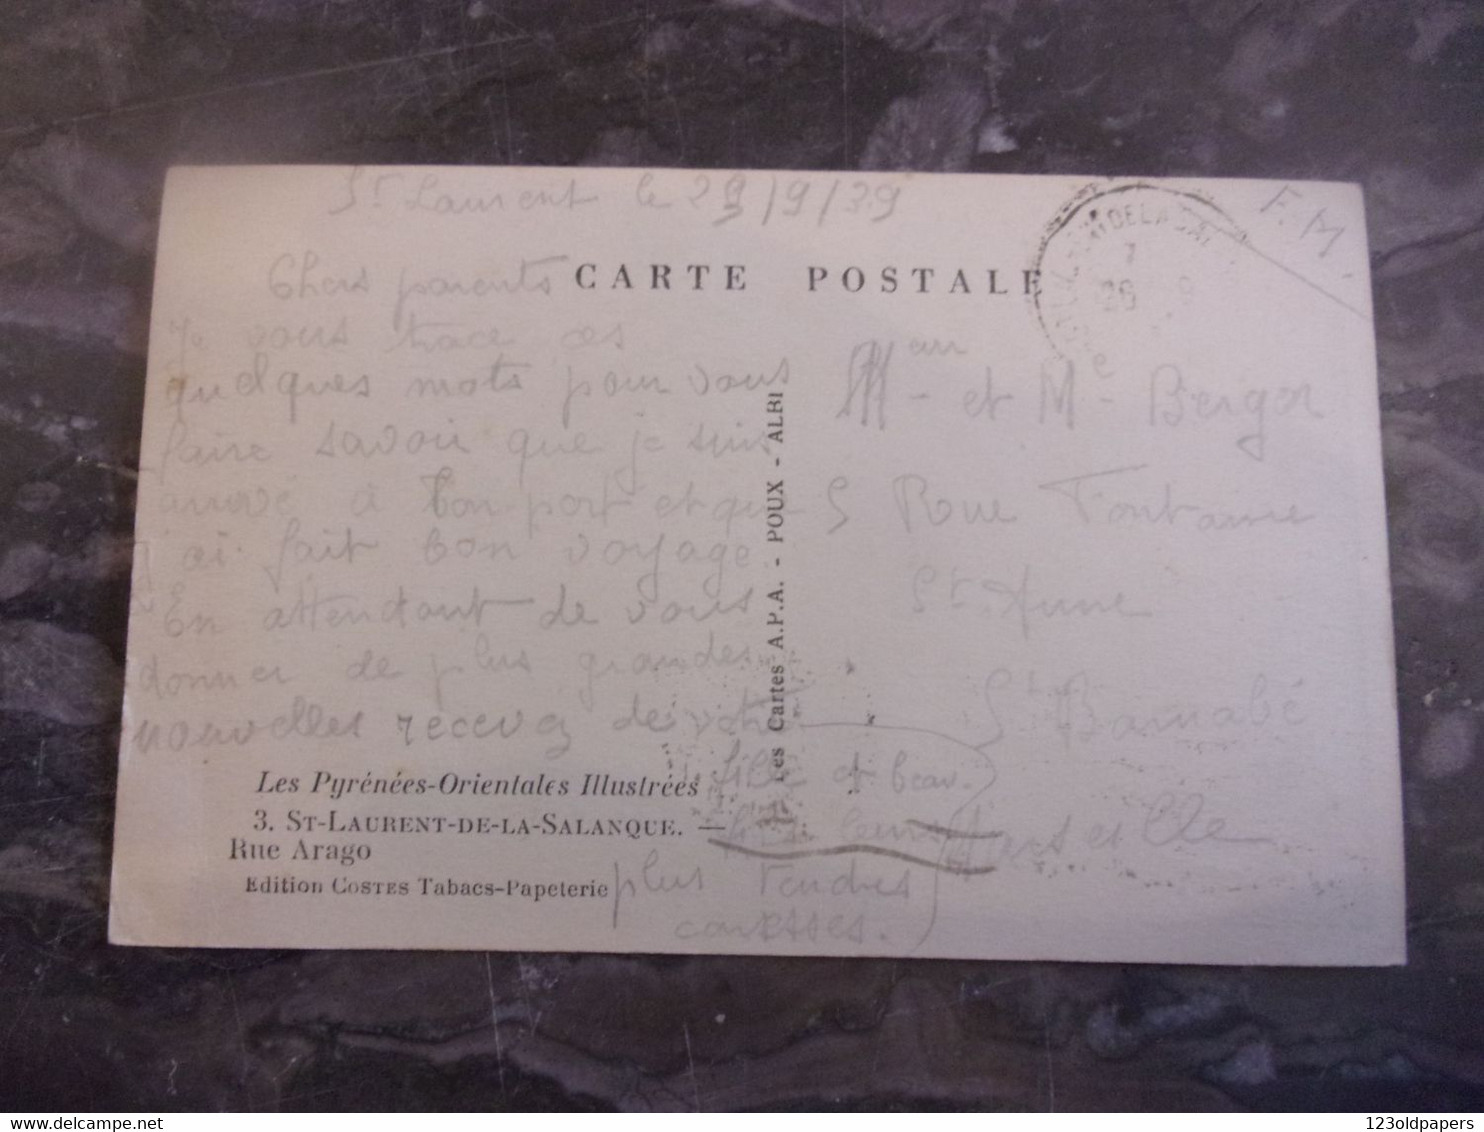 St Laurent le 29/9/39
F.M.
CARTE POSTALE
Chers parents
Je vous trace ces
quelques mots pour vous
faire savoir que je suis
arrivé à bon port et que
j'ai fait bon voyage
En attendant de vous
donner de plus grandes
nouvelles recevez de votre
fille et beau
fils leurs
plus tendres
caresses.
et Me Berger
5 Rue Fontaine
St Anne
St Barnabé
Marseille
Les Cartes A.P.A. - POUX - ALBI
Les Pyrénées-Orientales Illustrées
3. ST-LAURENT-DE-LA-SALANQUE. —
Rue Arago
Edition COSTES Tabacs-Papeterie
delcampe.net
123oldpapers